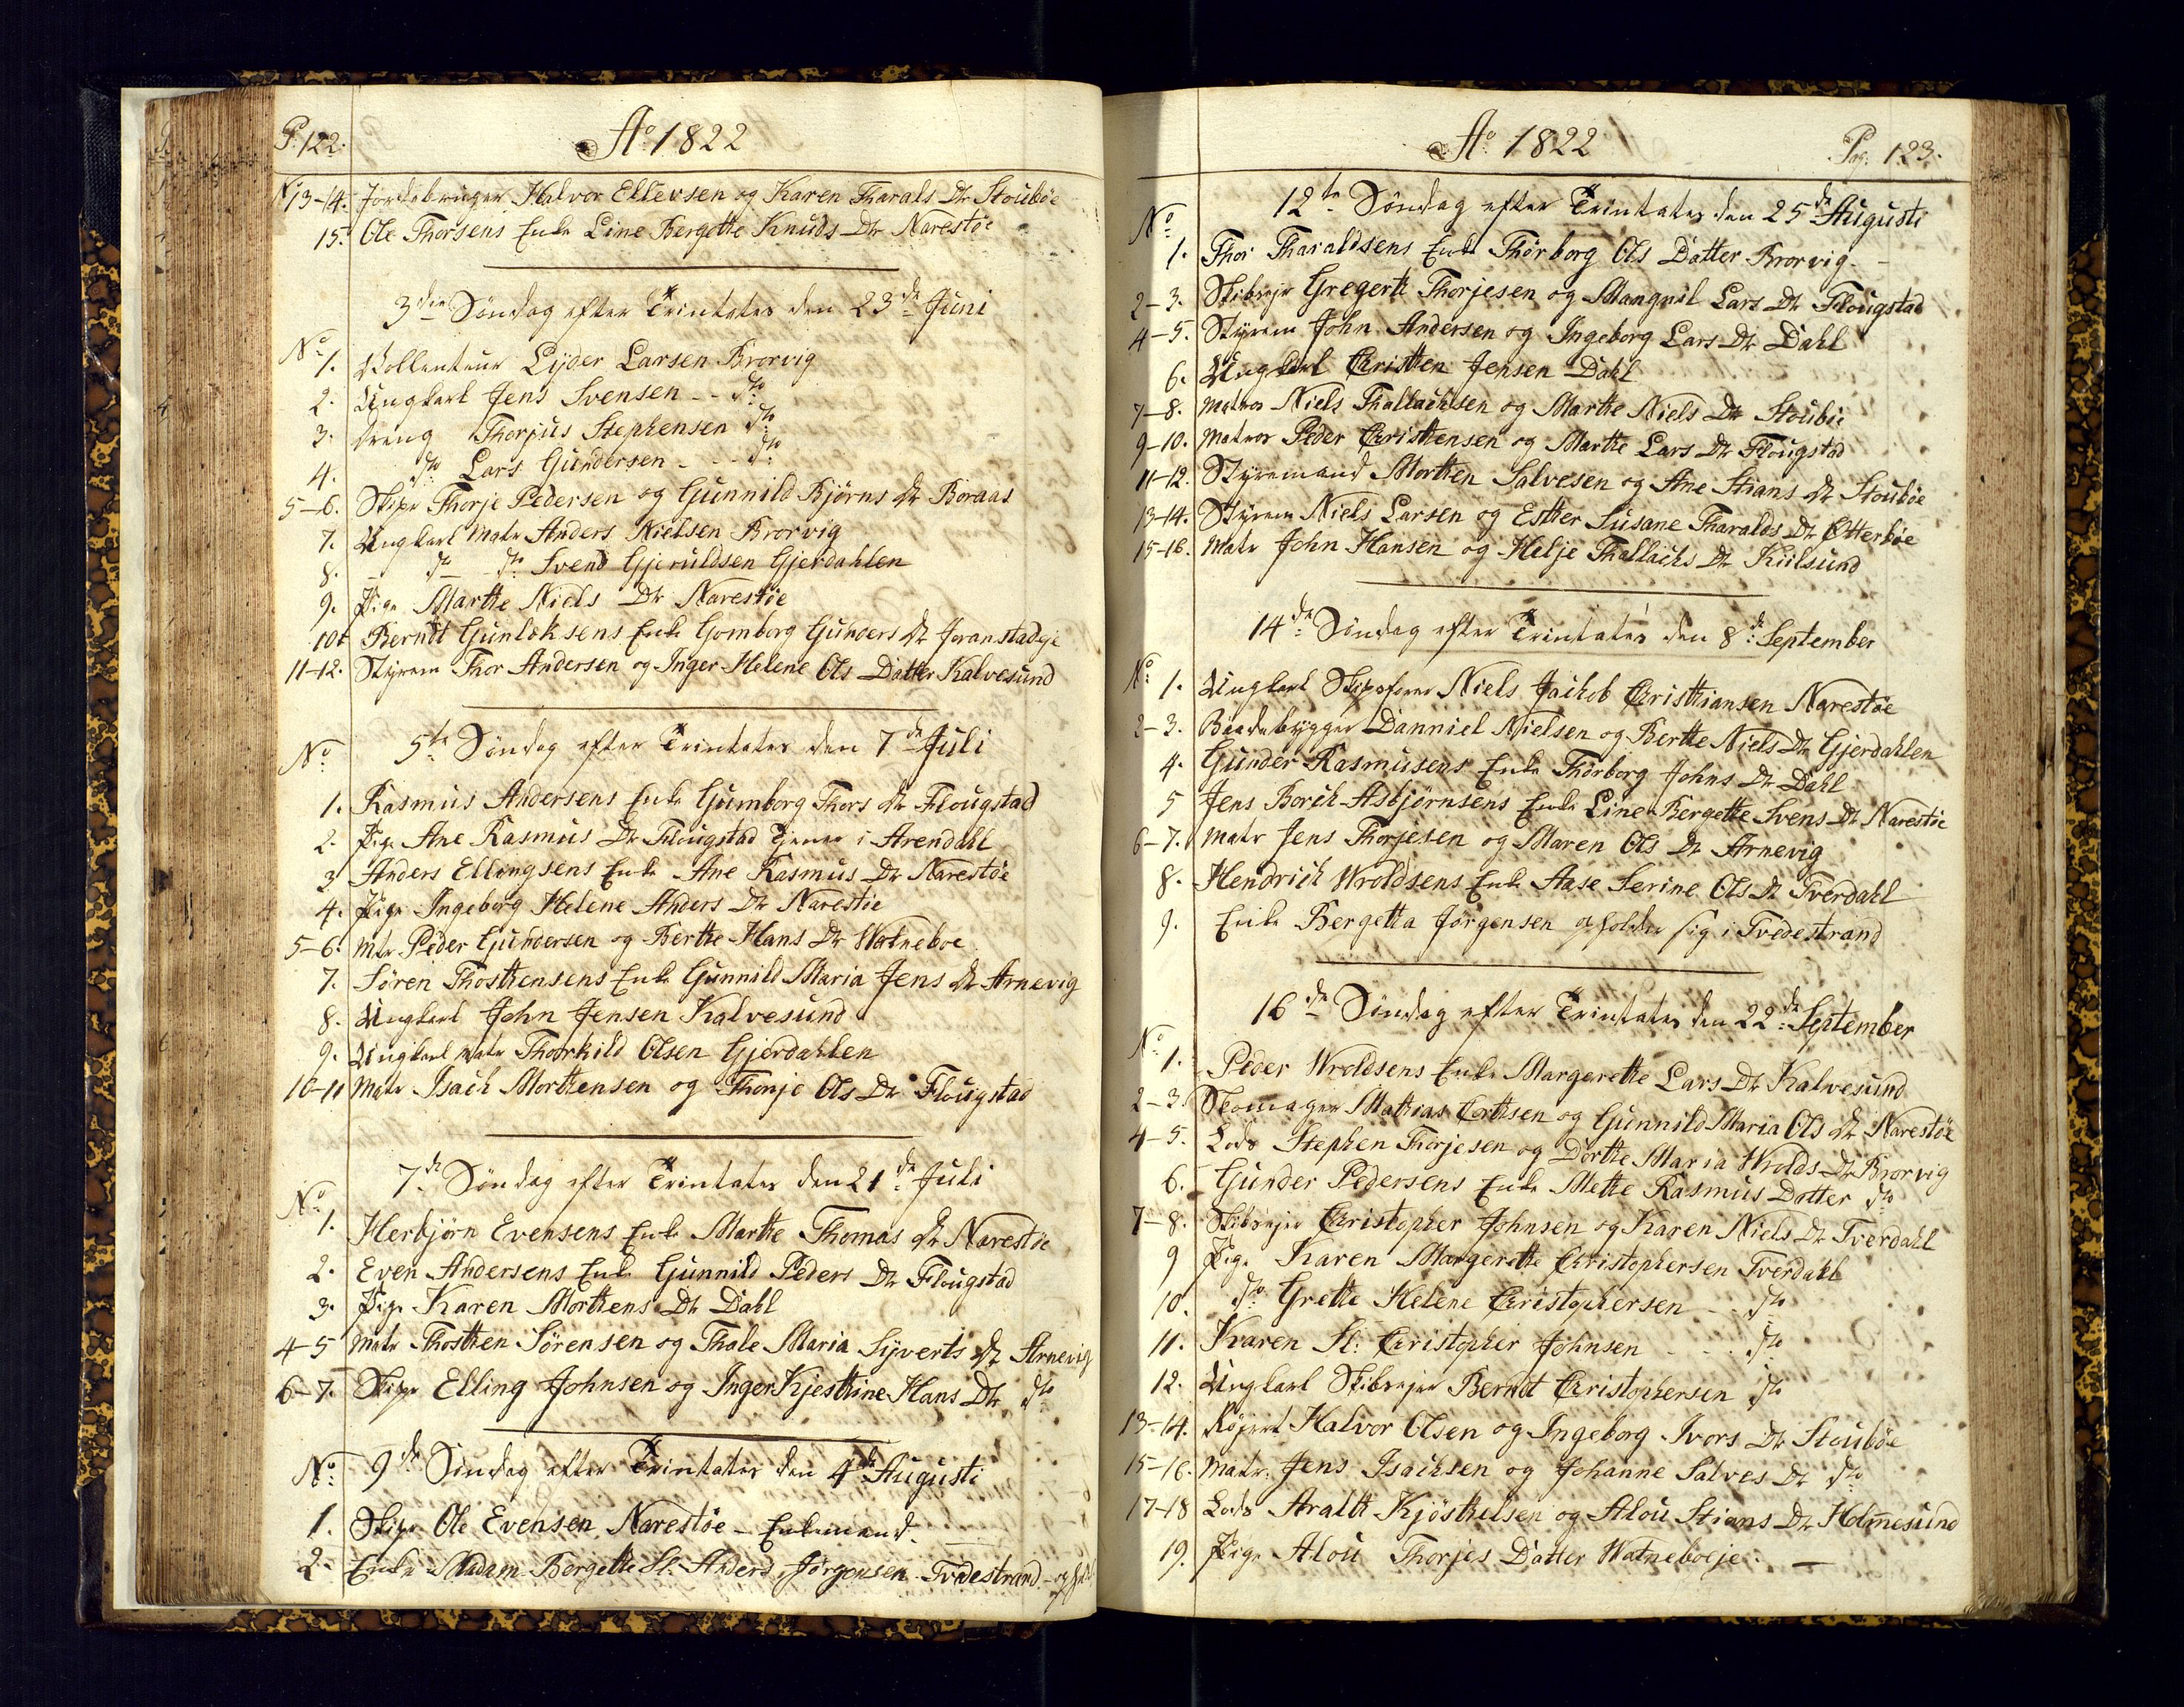 P. 122.
Ao 1822
No 13-14. Jordebruger Halvor Ellevsen og Karen Tharals Dr Stoubøe
15. Ole Thorsens Enke Line Bergette Knuds Dr Narestøe
3die Søndag efter Trinitates den 23de Juni
No
1. Lyder Larsen Brorvig
2. Ungkarl Jens Svensen - - do
3. Dreng Thorjus Stephensen do
4. do Lars Gundersen - - - do
5-6. Skipr Thorje Pedersen og Gunnild Bjørns Dr Boraas
7. Ungkarl Matr Anders Nielsen Brorvig
8. - do - do Svend Gjeruldsen Gjerdahlen
9. Pige Marthe Niels Dr Narestøe
10. Berndt Gunleksens Enke Gomborg Gunders Dr
11-12. Styrem Thor Andersen og Inger Helene Ols Datter Kalvesund
No 5te Søndag efter Trinitates den 7de Juli
1. Rasmus Andersens Enke Gumborg Thors Dr Flougstad
2. Pige Ane Rasmus Dr Flougstad Tjener i Arendahl
3 Anders Ellingsens Enke Ane Rasmus Dr Narestøe
4. Pige Ingeborg Helene Anders Dr Narestøe
5-6. Mtr Peder Gundersen og Berthe Hans Dr Watneboe
7. Søren Thosthensens Enke Gunnild Maria Jens Dr Arnevig
8. Ungkarl John Jensen Kalvesund
9. Ungkarl Matr Thoorkild Olsen Gjerdahlen
10-11 Matr Isach Morthensen og Thonje Ols Dr Flougstad
7de Søndag efter Trinitates den 21de Juli
No
1. Herbjørn Evensens Enke Marthe Thomas Dr Narestøe
2. Even Andersens Enke Gunnild Peders Dr Flougstad
3. Pige Karen Morthens Dr Dahl
4-5 Matr Thosthen Sørensen og Thale Maria Syverts Dr Arnevig
6-7. Skipr Elling Johnsen og Inger Kjesthine Hans Dr do
No 9de Søndag efter Trinitates den 4de Augusti
1. Skipr Ole Evensen Narestøe - Enkemand
2. Enke Madam Bergette Sl. Anders Jørgensen Tvedestrand -
Ao 1822
Pag. 123.
12te Søndag efter Trinitates den 25de Augusti
No
1. Thor Tharaldsens Enke Thørborg Ols Datter Brorvig
2-3. Skibrejer Gregerth Thorjesen og Mangnil Lars Dr Flougstad
4-5. Styrem John Andersen og Ingeborg Lars Dr Dahl
6. Ungkarl Christhen Jensen Dahl
7-8. Matros Niels Thallachsen og Marthe Niels Dr Stoubøe
9-10. Matros Peder Christhensen og Marthe Lars Dr Flougstad
11-12. Styremand Morthen Salvesen og Ane Stians Dr Stoubøe
13-14. Styrem Niels Larsen og Esther Susane Tharalds Dr Otterbøe
15-16. Matr John Hansen og Helje Thallachs Dr Kiilsund
14de Søndag efter Trinitates den 8de September
No
1. Ungkarl Skipsfører Niels Jachob Christhiansen Narestøe
2-3. Baadebygger Danniel Nielsen og Berthe Niels Dr Gjerdahlen
4. Gunder Rasmusens Enke Thørborg Johns Dr Dahl
5 Jens Borch Asbjørnsens Enke Line Bergette Svens Dr Narestøe
6-7. Matr Jens Thorjesen og Maren Ols Dr Arnevig
8. Hendrich Wroldsens Enke Aase Serine Ols Dr Tverdahl
9. Enke Bergetta Jørgensen opholder sig i Tvedestrand
16de Søndag efter Trinitates den 22de September
No
1. Peder Wroldsens Enke Margerethe Lars Dr Kalvesund
2-3. Skomager Mathias Corthsen og Gunnild Maria Ols Dr Narestøe
4-5. Lods Stephen Thorjesen og Dorthe Maria Wrolds Dr Brorvig
6. Gunder Pedersens Enke Mette Rasmus Datter do
7-8. Skibrejer Christopher Johnsen og Karen Niels Dr Tverdahl
9 Pige Karen Margerethe Christophersen Tverdahl
10. do Grethe Helene Christophersen - - do
11. Karen Sl. Christopher Johnsen - - - do
12. Ungkarl Skibrejer Berndt Christophersen do
13-14. Halvor Olsen og Ingeborg Ivors Dr Stoubøe
15-16. Matr. Jens Isachsen og Johanne Salves Dr do
17-18 Lods Aralth Kjøsthelsen og Alou Stians Dr Holmesund
19. Pige Alou Thorjes Datter Watneboeje. -